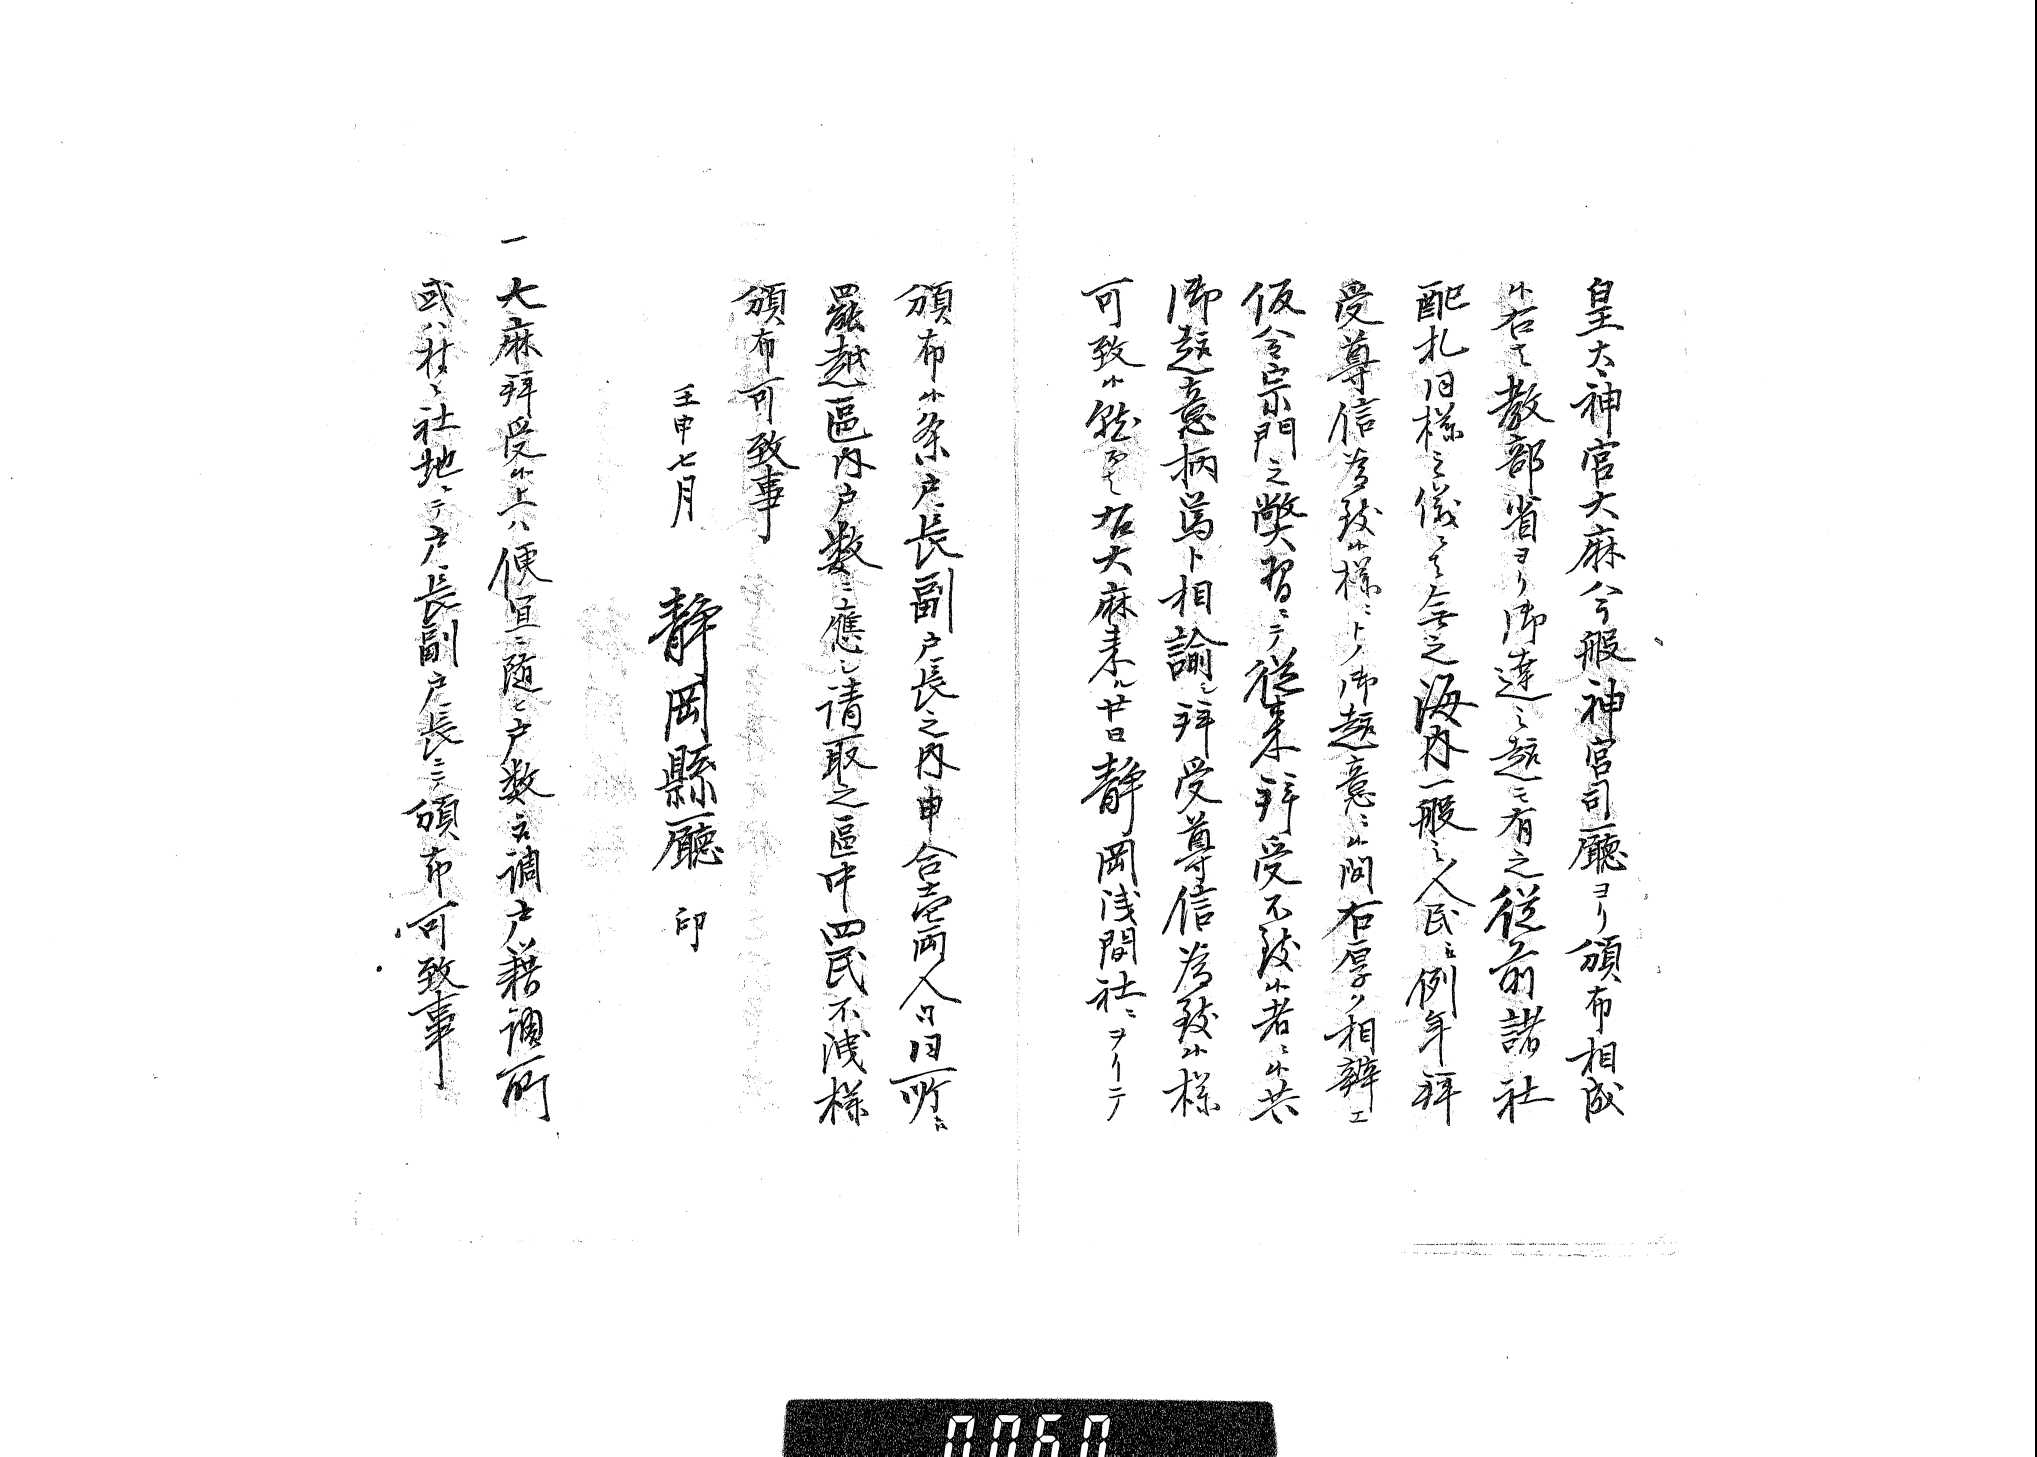 皇太神宮大麻今般神宮司廳ヨリ頒布相成
候右ハ教部省ヨリ御達之趣モ有之従前諸社
配札同様之儀ニハ無之海内一般之人民ニ例年拜
受尊信為致候様ニトノ御趣意ニ候間右厚ク相辨エ
仮令宗門之弊習ニテ従来拜受不致候者ニ候共
御趣意柄篤ト相諭シ拜受尊信為致候様
可致候就而ハ右大麻来ル廿日静岡浅間社ニヲイテ
頒布候条戸長副戸長之内申合壱両人同所
罷越區内戸数ニ應シ請取之區中四民不洩様
頒布可致事
壬申七月 静岡縣廳 印
一 大麻拜受候上ハ便宜ニ随ヒ戸数取調戸籍調所
或ハ村々社地ニテ戸長副戸長ニテ頒布可致事
0060